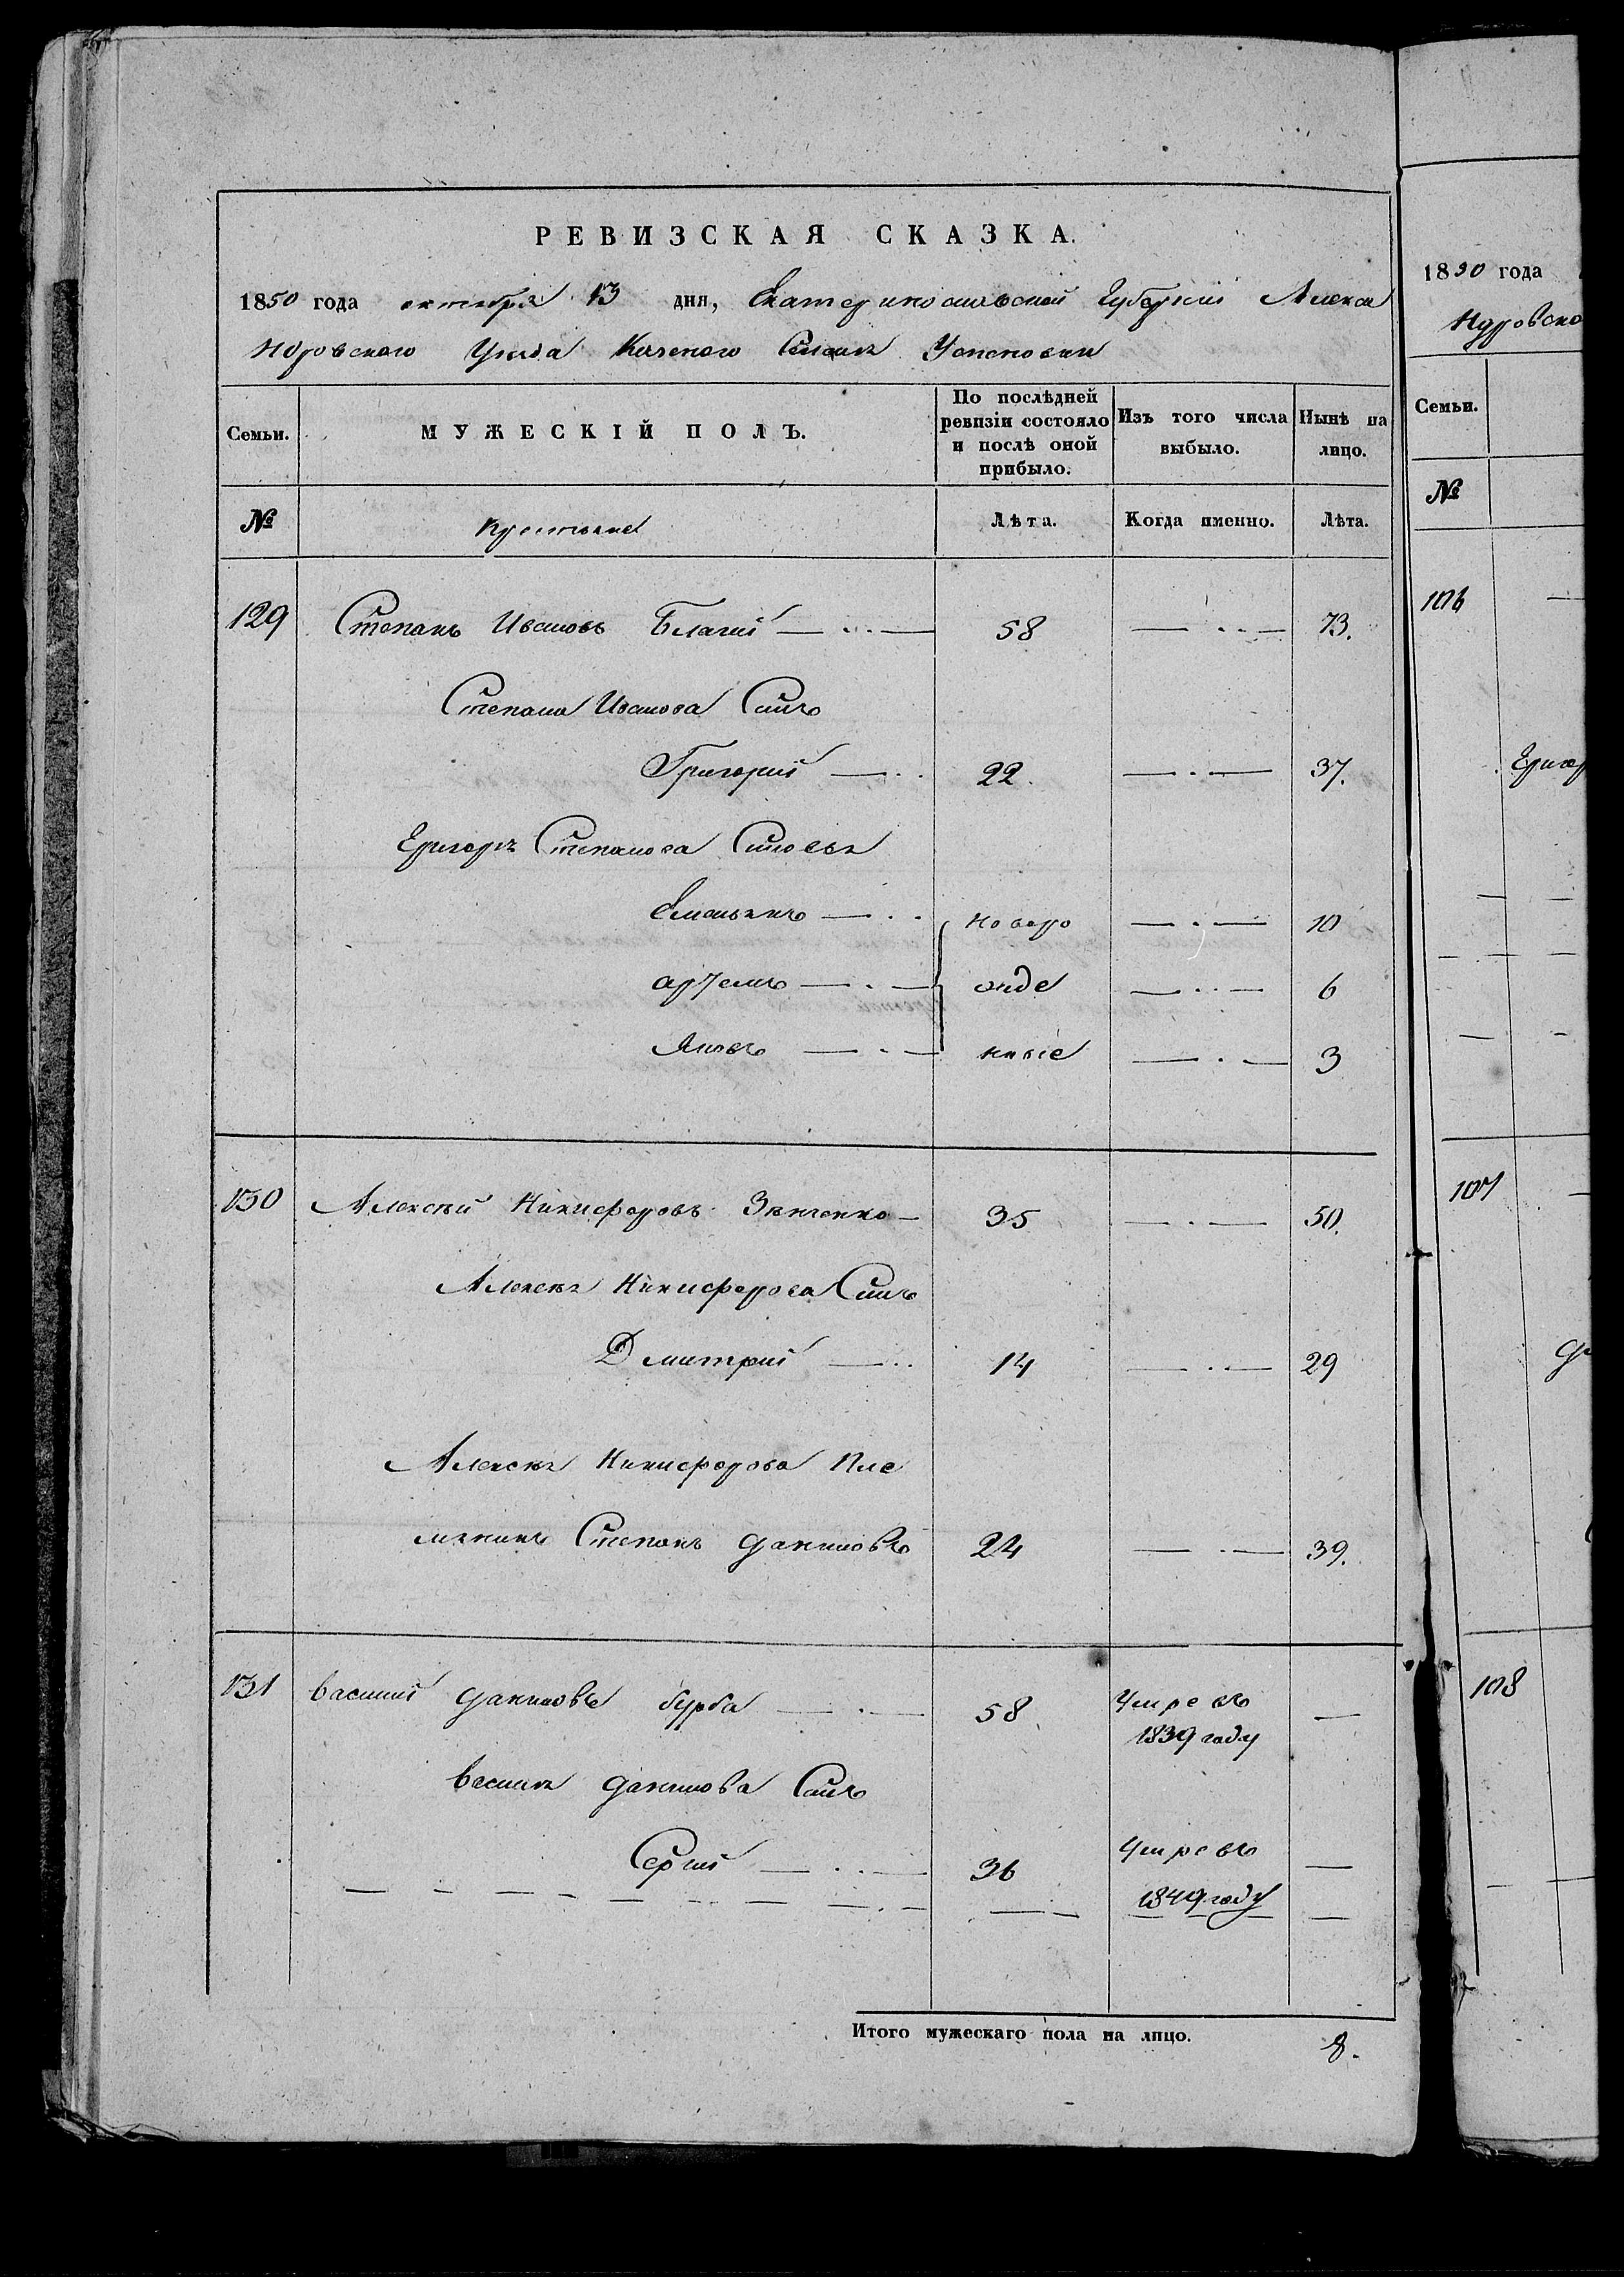 РЕВИЗСКАЯ СКАЗКА.
1850 года октября 13 дня, Екатеринославской Губернии Алекса
ндровского Уезда Казеного Селения Успеновки
Семьи. МУЖЕСКІЙ ПОЛЪ. По послѣдней ревизіи состояло и послѣ оной прибыло. Изъ того числа выбыло. Нынѣ на лицо.
№ Крестьяне Лѣта. Когда именно. Лѣта.
129 Степанъ Ивановъ Благий 58 73.
Степана Иванова Сынъ
Григорий 22. 37.
Григорія Степанова Сыновья
Емельянъ новоро 10
артемъ жде 6
Яковъ нные 3
130 Алексѣй Никифоровъ Зинченко 35 50.
Алексѣя Никифорова Сынъ
Дмитрий 14 29
Алексѣя Никифорова Пле
мянникъ Степанъ даниловъ 24 39.
131 василий даниловъ бурба 58 Умре въ
1839 году
василия данилова Сынъ
Сергий 36 Умре въ
1849 году
Итого мужескаго пола на лицо. 8.
1850 года
ндровско
Семьи.
№
106
Григор
107
108